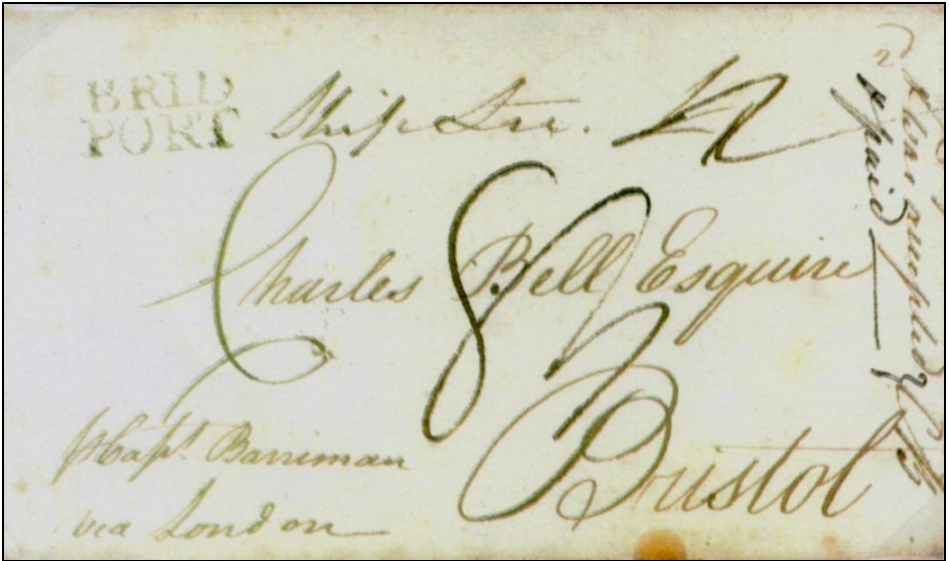 BRID
PORT
Ship Lre.
Charles Bell Esquire
8
Bristol
p Capt. Barriman
via London
paid